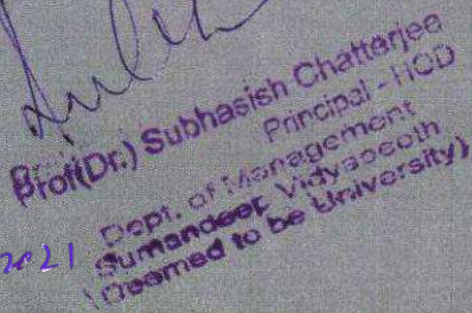 Prof(Dr.) Subhasish Chatterjee
Principal - HOD
Dept. of Management
Sumandeep Vidyapeeth
(Deemed to be University)
2021